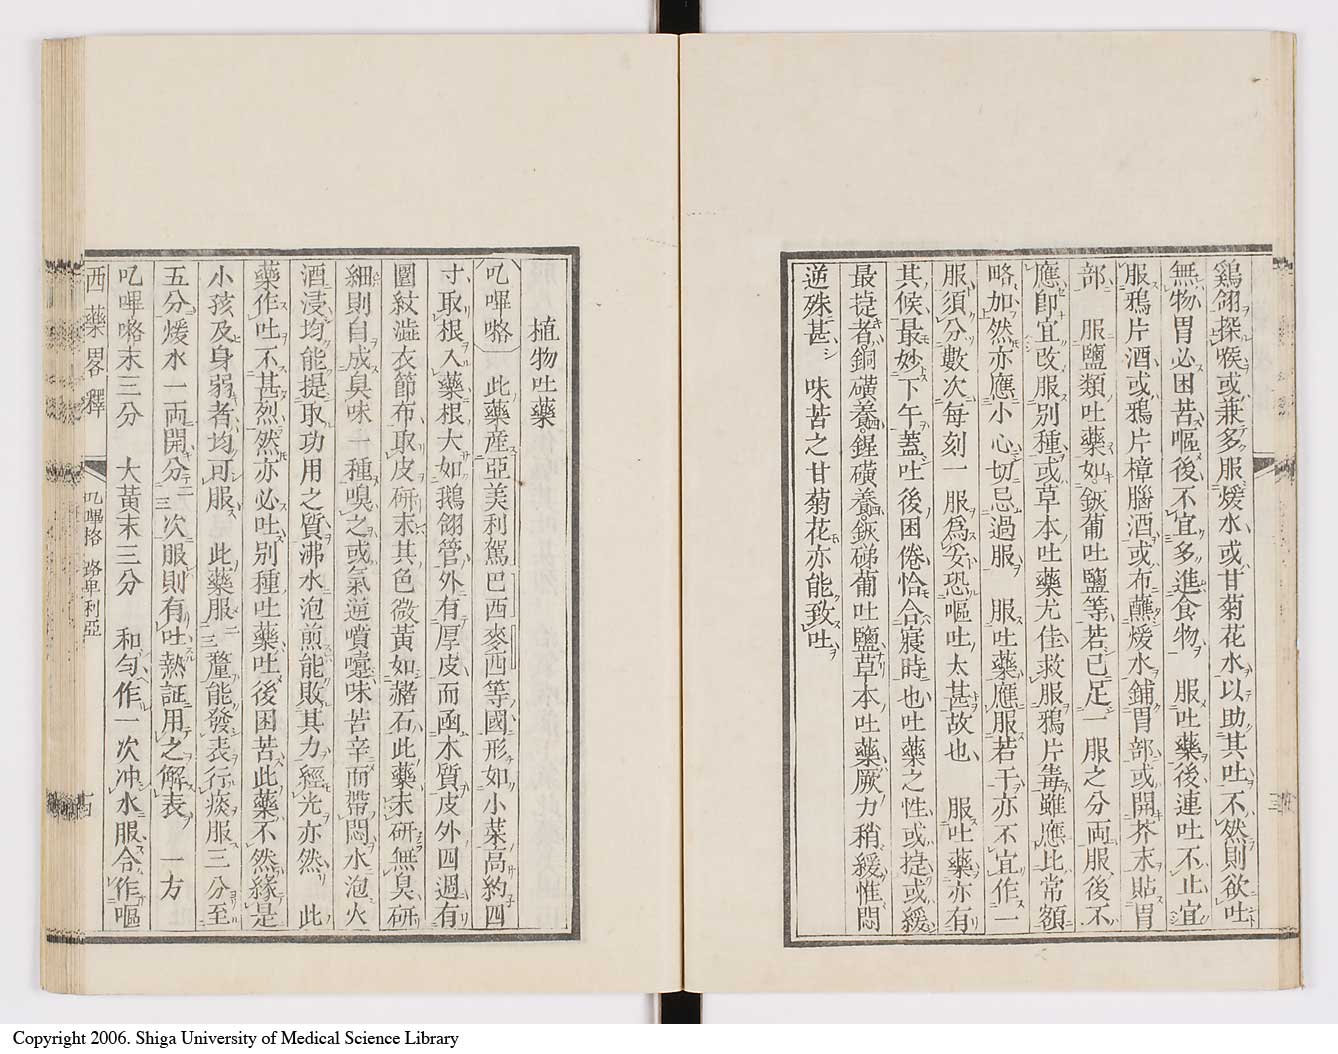 鷄翎探喉或兼多服煖水或甘菊花水以助其吐不然則欲吐
無物胃必困苦嘔後不宜多進食物　服吐藥後連吐不止宜
服鴉片酒或鴉片樟腦酒或布蘸煖水鋪胃部或開芥末貼胃
部　服鹽類吐藥如鋏葡吐鹽等若已足一服之分兩服後不
應卽宜改服別種或草本吐藥尤佳救服鴉片毒雖應比常額
略加然亦應小心切忌過服　服吐藥應服若干亦不宜作一
服須分數次每刻一服爲妥恐嘔吐太甚故也　服吐藥亦有
其候最妙下午蓋吐後困倦恰合寢時也吐藥之性或㨗或緩
最㨗者銅磺養鋅磺養鋏硑葡吐鹽草本吐藥厥力稍緩惟悶
逆殊甚　味苦之甘菊花亦能致吐
植物吐藥
叱嗶嗠　此藥產亞美利駕巴西麥西等國形如小菜高約四
寸取根入藥根大如鵝翎管外有厚皮而函木質皮外四週有
圈紋溢衣節布取皮硏末其色微黃如赭石此藥未硏無臭硏
細則自成臭味一種嗅之或氣逆嚏味苦辛而帶悶水泡火
酒浸均能提取功用之質沸水泡煎能敗其力經光亦然　此
藥作吐不甚烈然亦必吐別種吐藥吐後困苦此藥不然緣是
小孩及身弱者均可服　此藥服二三釐能發表行痰服三分至
五分煖水一兩開分二三次服則有吐熱証用之解表　一方
叱嗶嗠末三分　大黃末三分　和勻作一次冲水服合作嘔
西藥畧釋　叱嗶格　路卑利亞　十四